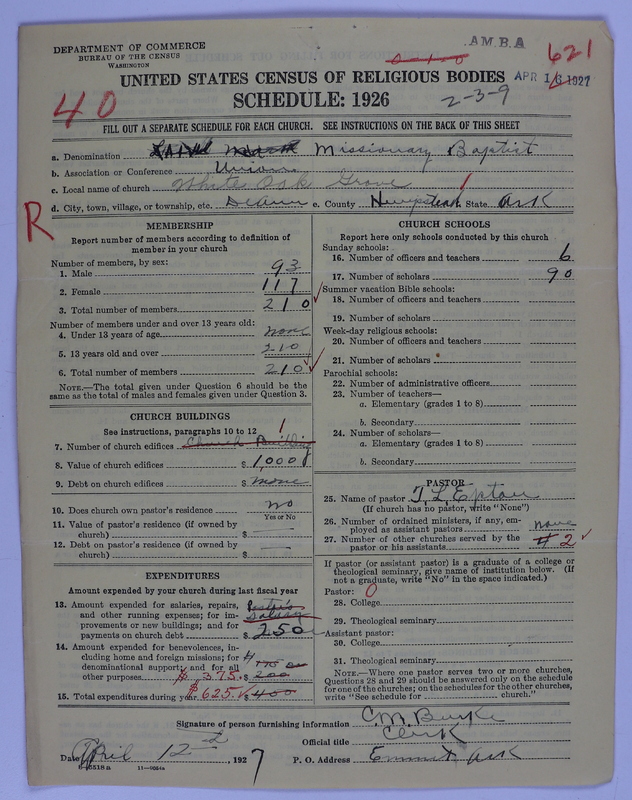 A.M.B.A
DEPARTMENT OF COMMERCE
BUREAU OF THE CENSUS
WASHINGTON
0-1-0
621
UNITED STATES CENSUS OF RELIGIOUS BODIES
APR 16 1927
40
SCHEDULE: 1926
2-3-9
FILL OUT A SEPARATE SCHEDULE FOR EACH CHURCH. SEE INSTRUCTIONS ON THE BACK OF THIS SHEET
a. Denomination Missionary Baptist
b. Association or Conference Union
c. Local name of church White Oak Grove
d. City, town, village, or township, etc. DeAnn e. County Hempstead State Ark
R
MEMBERSHIP
Report number of members according to definition of
member in your church
Number of members, by sex:
1. Male 93
2. Female 117
3. Total number of members 210
Number of members under and over 13 years old:
4. Under 13 years of age none
5. 13 years old and over 210
6. Total number of members 210
NOTE.—The total given under Question 6 should be the
same as the total of males and females given under Question 3.
CHURCH BUILDINGS
See instructions, paragraphs 10 to 12 1
7. Number of church edifices Church Building
8. Value of church edifices $ 1,000
9. Debt on church edifices $ none
10. Does church own pastor's residence no
Yes or No
11. Value of pastor's residence (if owned by
church) $
12. Debt on pastor's residence (if owned by
church) $
EXPENDITURES
Amount expended by your church during last fiscal year
13. Amount expended for salaries, repairs, Pastor's
and other running expenses; for im- Salary
provements or new buildings; and for
payments on church debt $ 250
14. Amount expended for benevolences, in-
cluding home and foreign missions; for
denominational support; and for all
other purposes $ 375. $ 200
15. Total expenditures during year $ 625. $ 400
CHURCH SCHOOLS
Report here only schools conducted by this church
Sunday schools:
16. Number of officers and teachers 6
17. Number of scholars 90
Summer vacation Bible schools:
18. Number of officers and teachers
19. Number of scholars
Week-day religious schools:
20. Number of officers and teachers
21. Number of scholars
Parochial schools:
22. Number of administrative officers
23. Number of teachers—
a. Elementary (grades 1 to 8)
b. Secondary
24. Number of scholars—
a. Elementary (grades 1 to 8)
b. Secondary
PASTOR
25. Name of pastor T L Epton
(If church has no pastor, write "None")
26. Number of ordained ministers, if any, em-
ployed as assistant pastors none
27. Number of other churches served by the
pastor or his assistants # 2
If pastor (or assistant pastor) is a graduate of a college or
theological seminary, give name of institution below. (If
not a graduate, write "No" in the space indicated.)
Pastor: 0
28. College
29. Theological seminary
Assistant pastor:
30. College
31. Theological seminary
NOTE.—Where one pastor serves two or more churches,
Questions 28 and 29 should be answered only on the schedule
for one of the churches; on the schedules for the other churches,
write "See schedule for church."
Signature of person furnishing information C. M. Burke
Official title Clerk
Date April 12, 1927 P. O. Address Emmet Ark